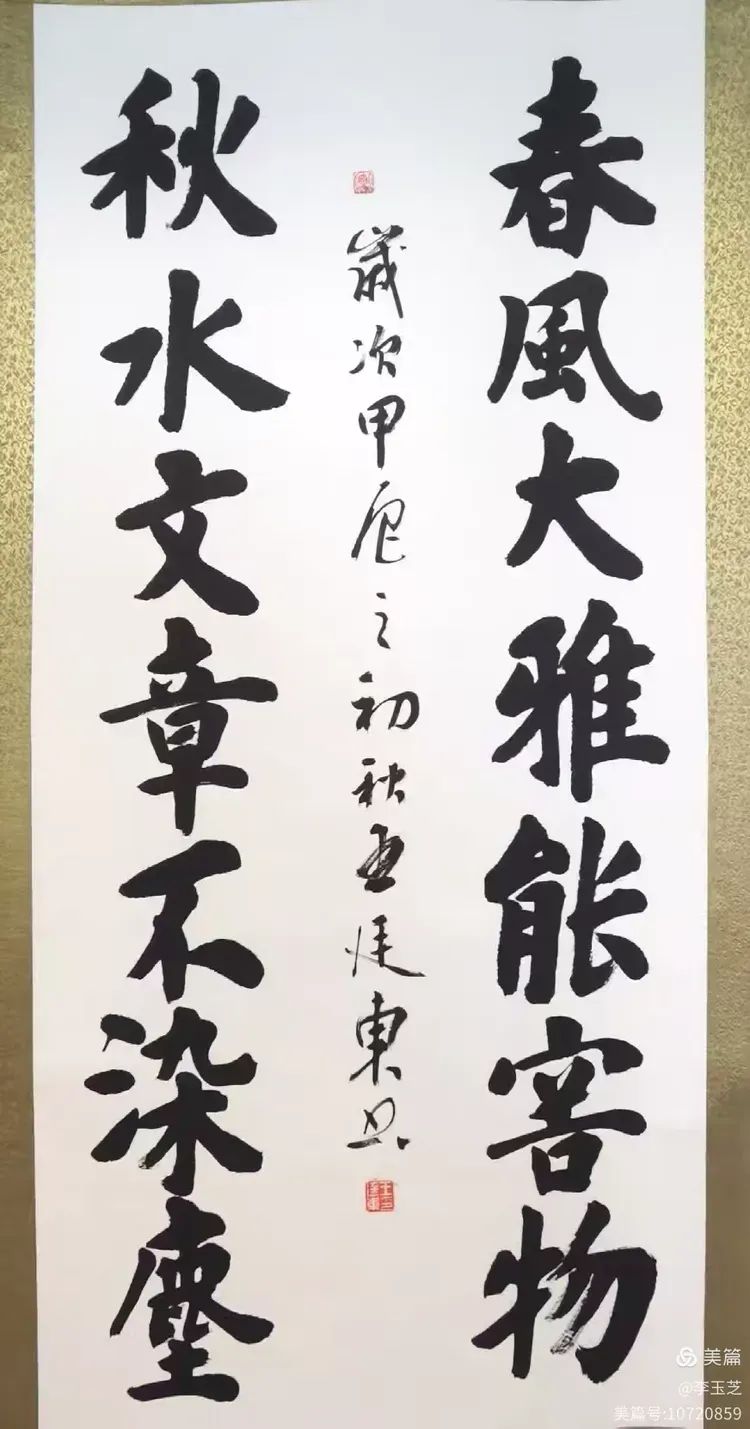 春風大雅能容物
歲次甲辰之初秋王廷東书
秋水文章不染塵
美篇
@李玉芝
美篇号:10720859